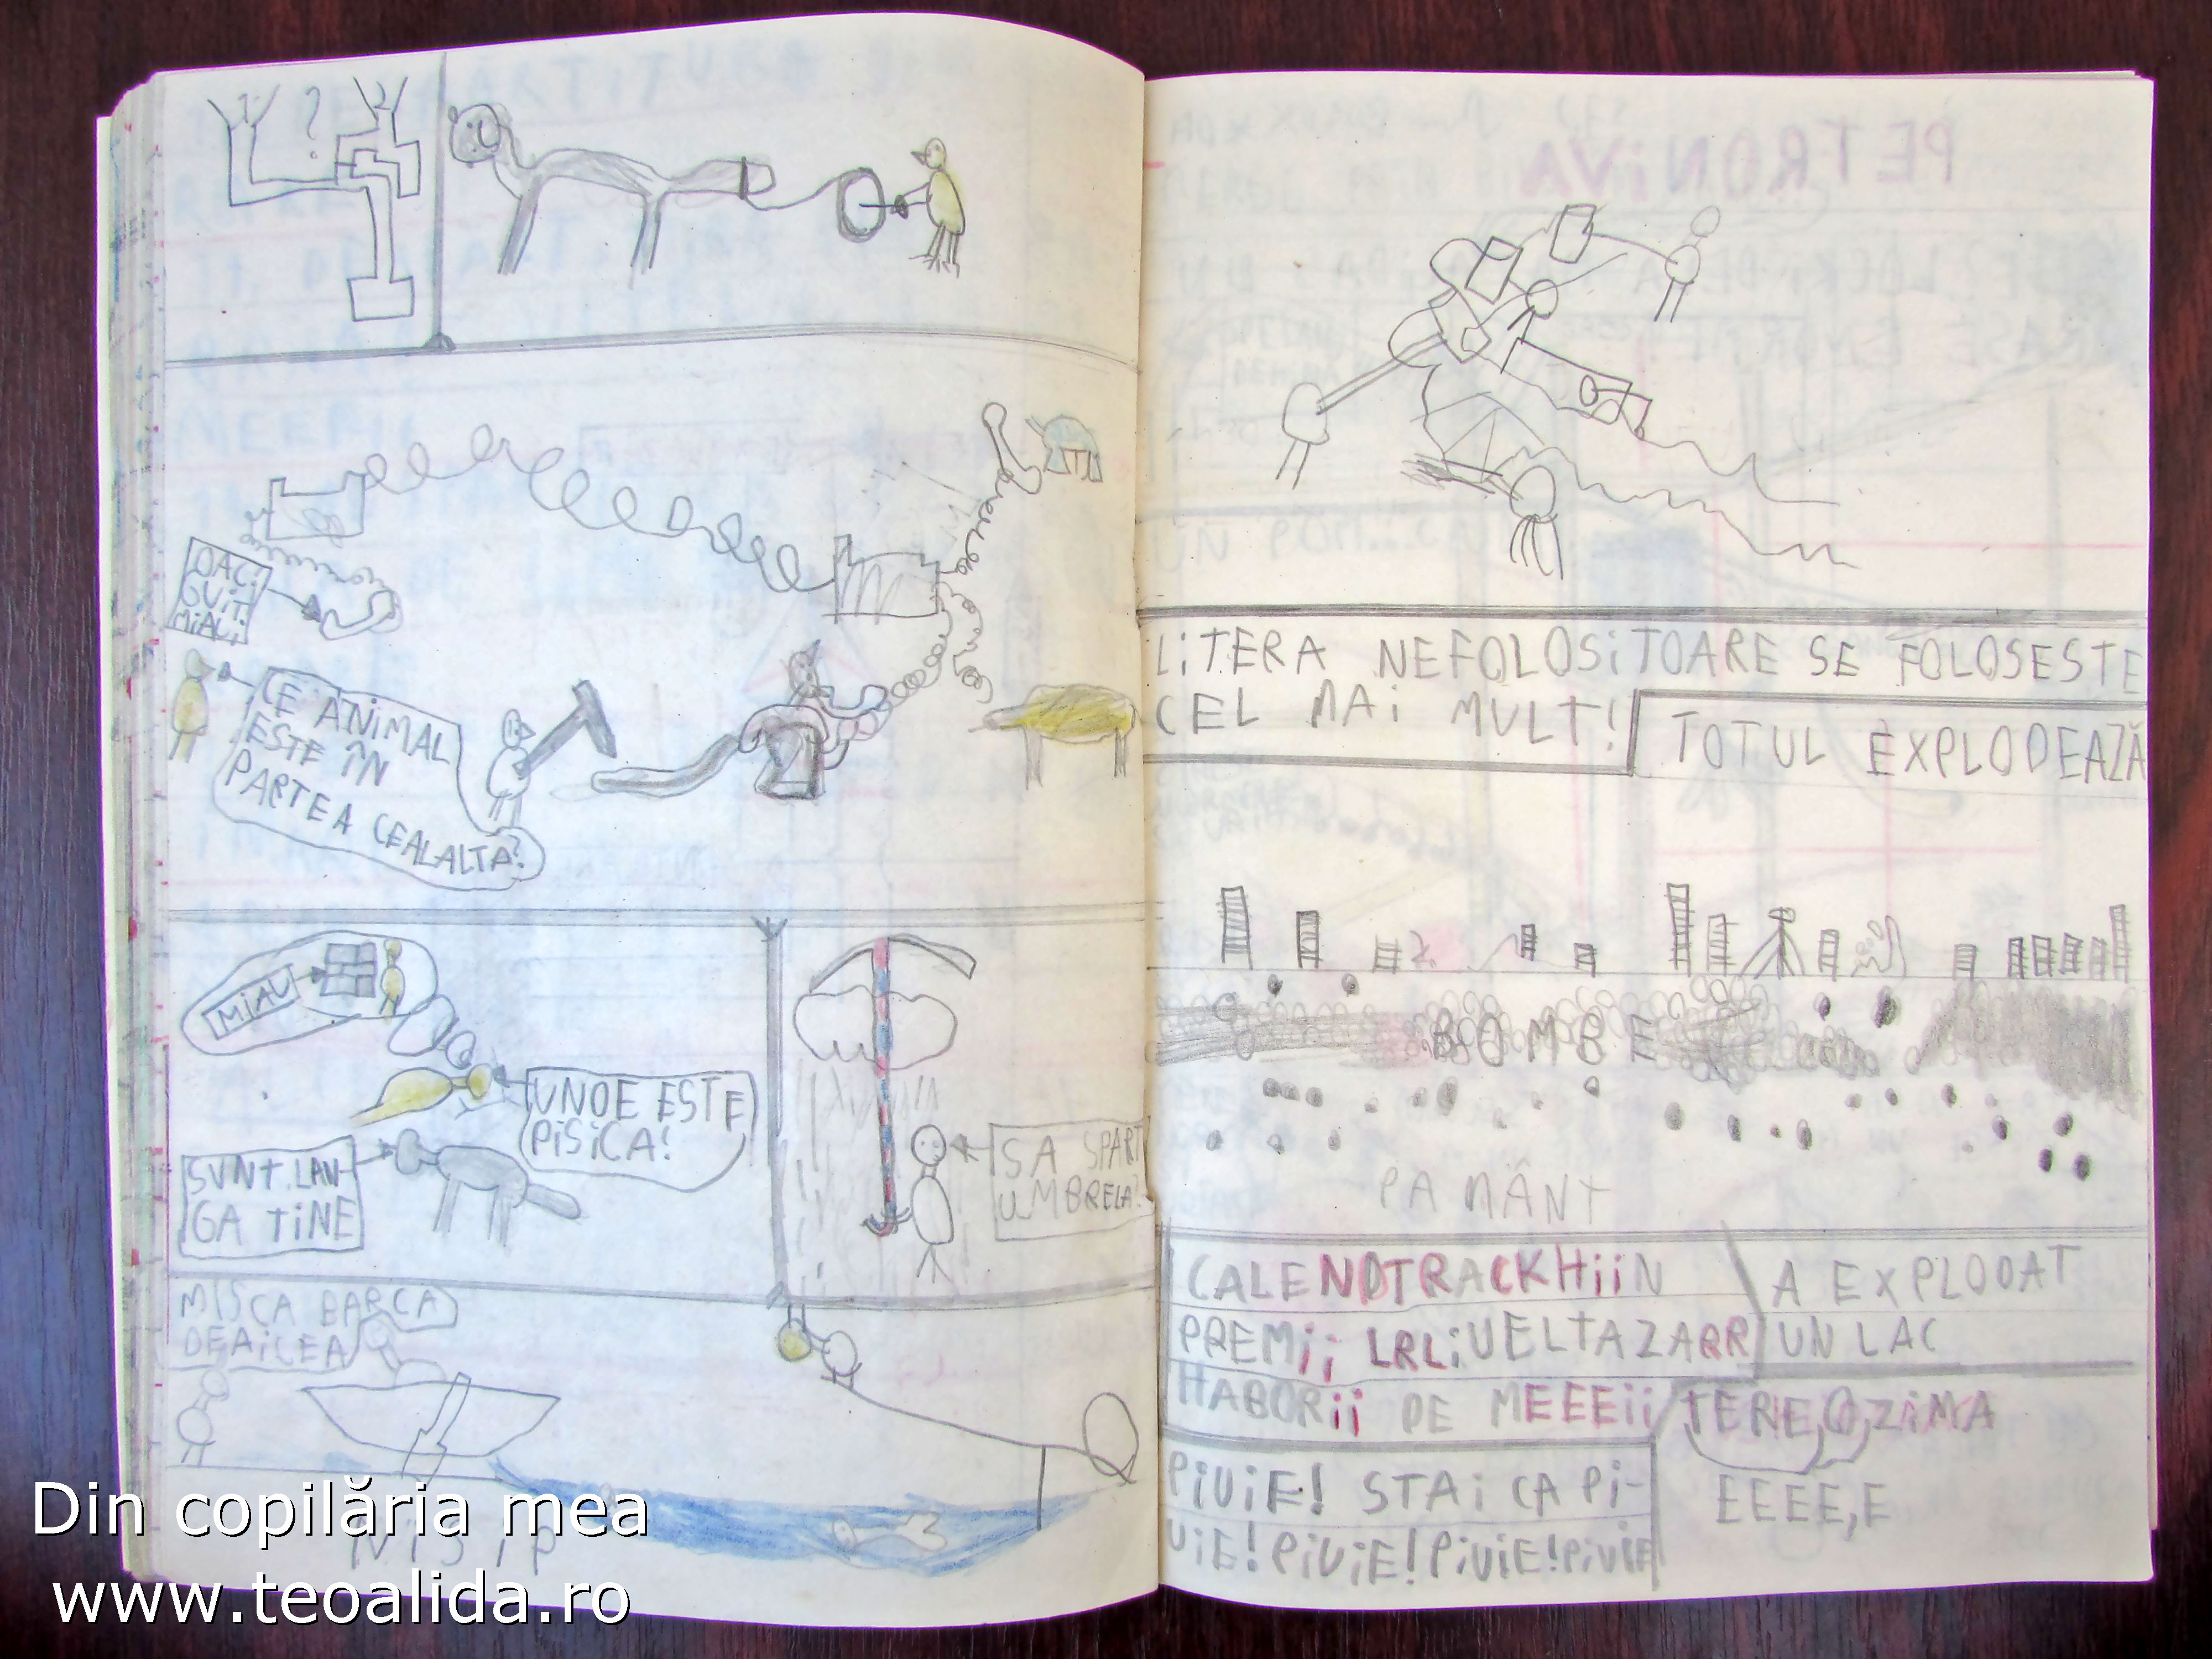 OAC!
GUIT!
MIAU!
CE ANIMAL
ESTE ÎN
PARTEA CEALALTA?
MIAU
UNDE ESTE
PISICA!
SUNT LAN-
GA TINE
SA SPART
UMBRELA?
MISCA BARCA
DEAICEA
NISIP
PETRONIVA
LITERA NEFOLOSITOARE SE FOLOSESTE
CEL MAI MULT!
TOTUL EXPLODEAZĂ
BOMBE
PAMÂNT
CALENDTRACKHIIN
PREMII LRLIUELTAZARR
HABORII DE MEEEII
A EXPLODAT
UN LAC
TEREOZIMA
EEEE,E
PIUIE! STAI CA PI-
UIE! PIUIE! PIUIE! PIUIE
Din copilăria mea
www.teoalida.ro